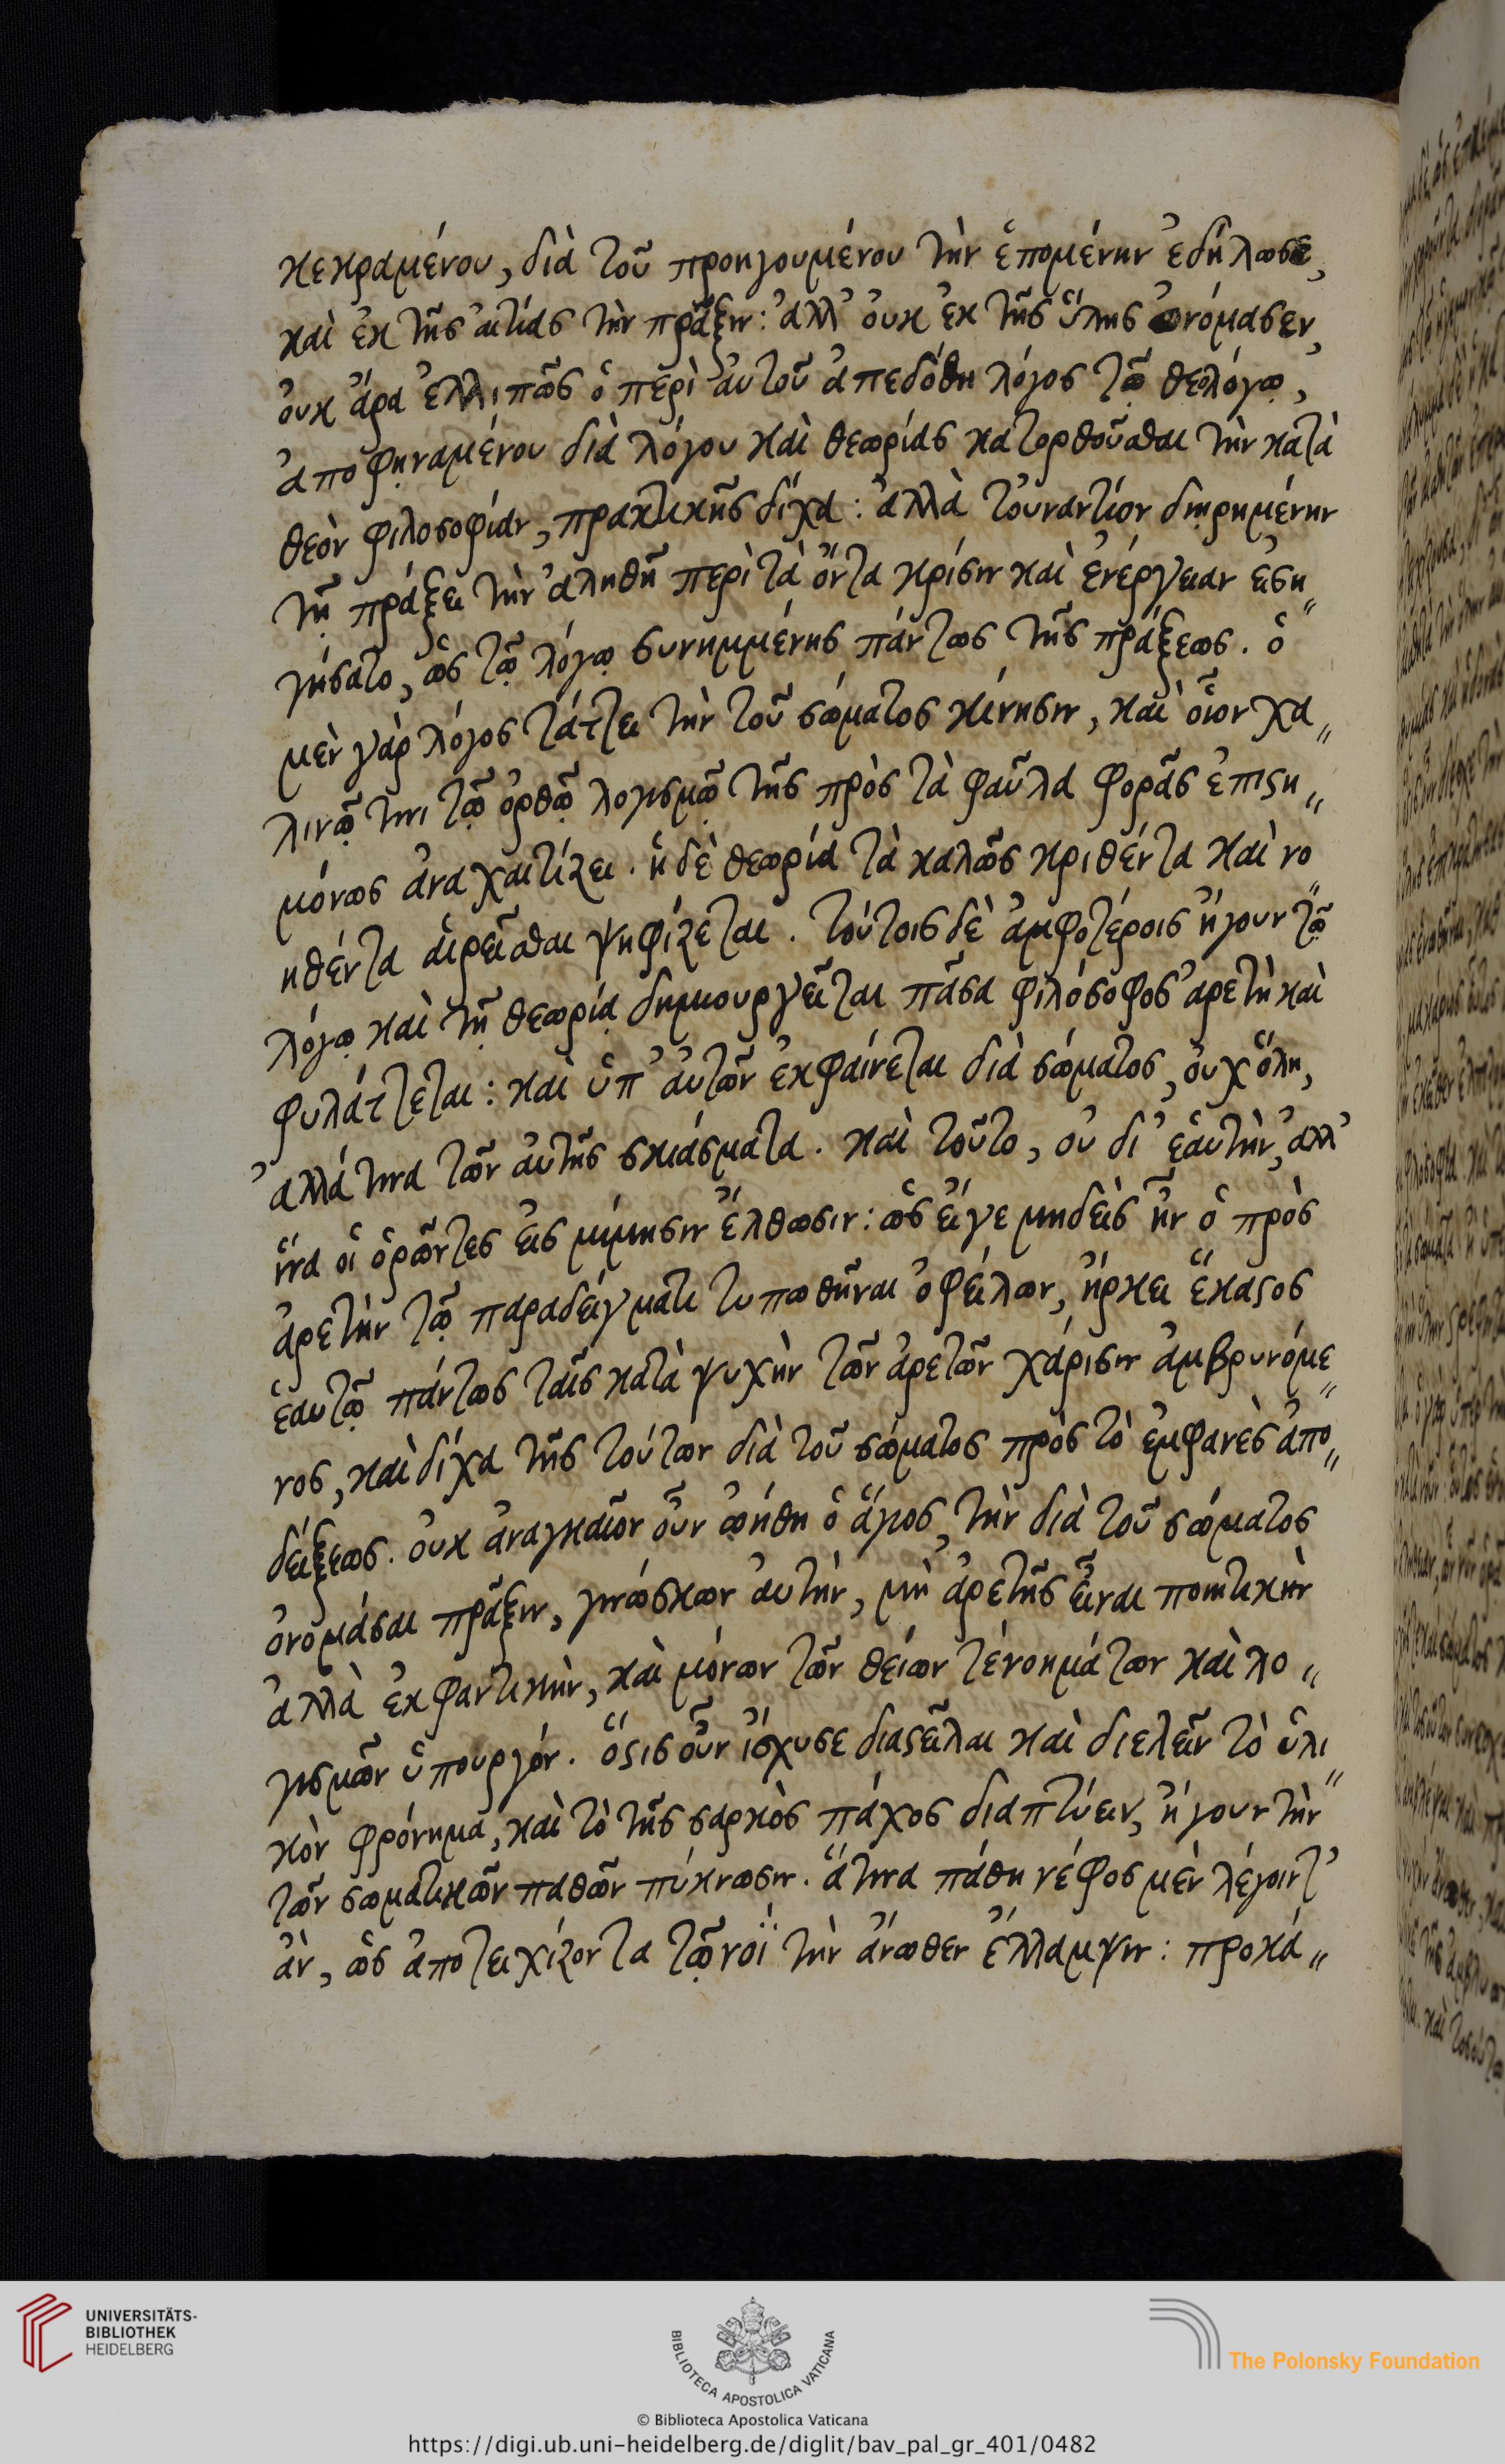 κεκραμένου, διὰ τοῦ προηγουμένου τὴν ἑπομένην ἐδήλωσε,
καὶ ἐκ τῆς αἰτίας τὴν πρᾶξιν: ἀλλ' οὐκ ἐκ τῆς ὕλης ὠνόμασεν,
οὐκ ἄρα ἐλλιπῶς ὁ περὶ αὐτοῦ ἀπεδόθη λόγος τῷ θεολόγῳ,
ἀποφηναμένου διὰ λόγου καὶ θεωρίας κατορθοῦσθαι τὴν κατὰ
θεὸν φιλοσοφίαν, πρακτικῆς δίχα: ἀλλὰ τοὐναντίον διῃρημένην
τῇ πράξει τὴν ἀληθῆ περὶ τὰ ὄντα κρίσιν καὶ ἐνέργειαν εἰση„
γήσατο, ὡς τῷ λόγῳ συνημμένης πάντως τῆς πράξεως. ὁ
μὲν γὰρ λόγος τάττει τὴν τοῦ σώματος κίνησιν, καὶ οἷον χα„
λινῷ τινι τῷ ὀρθῷ λογισμῷ τῆς πρὸς τὰ φαῦλα φορᾶς ἐπιϛη„
μόνως ἀναχαιτίζει. ἡ δὲ θεωρία τὰ καλῶς κριθέντα καὶ νο„
ηθέντα αἱρεῖσθαι ψηφίζεται. τούτοις δὲ ἀμφοτέροις ἤγουν τῷ
λόγῳ καὶ τῇ θεωρίᾳ δημιουργεῖται πᾶσα φιλόσοφος ἀρετὴ καὶ
φυλάττεται: καὶ ὑπ' αὐτῶν ἐκφαίνεται διὰ σώματος, οὐχ ὅλη,
ἀλλά τινα τῶν αὐτῆς σκιάσματα. καὶ τοῦτο, οὐ δι' ἑαυτὴν, ἀλλ'
ἵνα οἱ ὁρῶντες εἰς μίμησιν ἔλθωσιν: ὡς εἴγε μηδεὶς ἦν ὁ πρὸς
ἀρετὴν τῷ παραδείγματι τυπωθῆναι ὀφείλων, ἤρκει ἕκαϛος
ἑαυτῷ πάντως ταῖς κατὰ ψυχὴν τῶν ἀρετῶν χάρισιν ἁμβρυνόμε„
νος, καὶ δίχα τῆς τούτων διὰ τοῦ σώματος πρὸς τὸ ἐμφανὲς ἀπο„
δείξεως. οὐκ ἀναγκαῖον οὖν ᾠήθη ὁ ἅγιος, τὴν διὰ τοῦ σώματος
ὀνομάσαι πρᾶξιν, γινώσκων αὐτὴν, μὴ ἀρετῆς εἶναι ποιητικὴν
ἀλλὰ ἐκφαντικὴν, καὶ μόνων τῶν θείων τε νοημάτων καὶ λο„
γισμῶν ὑπουργόν. ὅϛις οὖν ἴσχυσε διαϛεῖλαι καὶ διελεῖν τὸ ὑλι„
κὸν φρόνημα, καὶ τὸ τῆς σαρκὸς πάχος διαπτύειν, ἤγουν τὴν
τῶν σωματικῶν παθῶν πύκνωσιν. ἅτινα πάθη νέφος μὲν λέγοιντ'
ἂν, ὡς ἀποτειχίζοντα τῷ νοῒ τὴν ἄνωθεν ἔλλαμψιν: προκά„
UNIVERSITÄTS-
BIBLIOTHEK
HEIDELBERG
BIBLIOTECA APOSTOLICA VATICANA
The Polonsky Foundation
© Biblioteca Apostolica Vaticana
https://digi.ub.uni-heidelberg.de/diglit/bav_pal_gr_401/0482